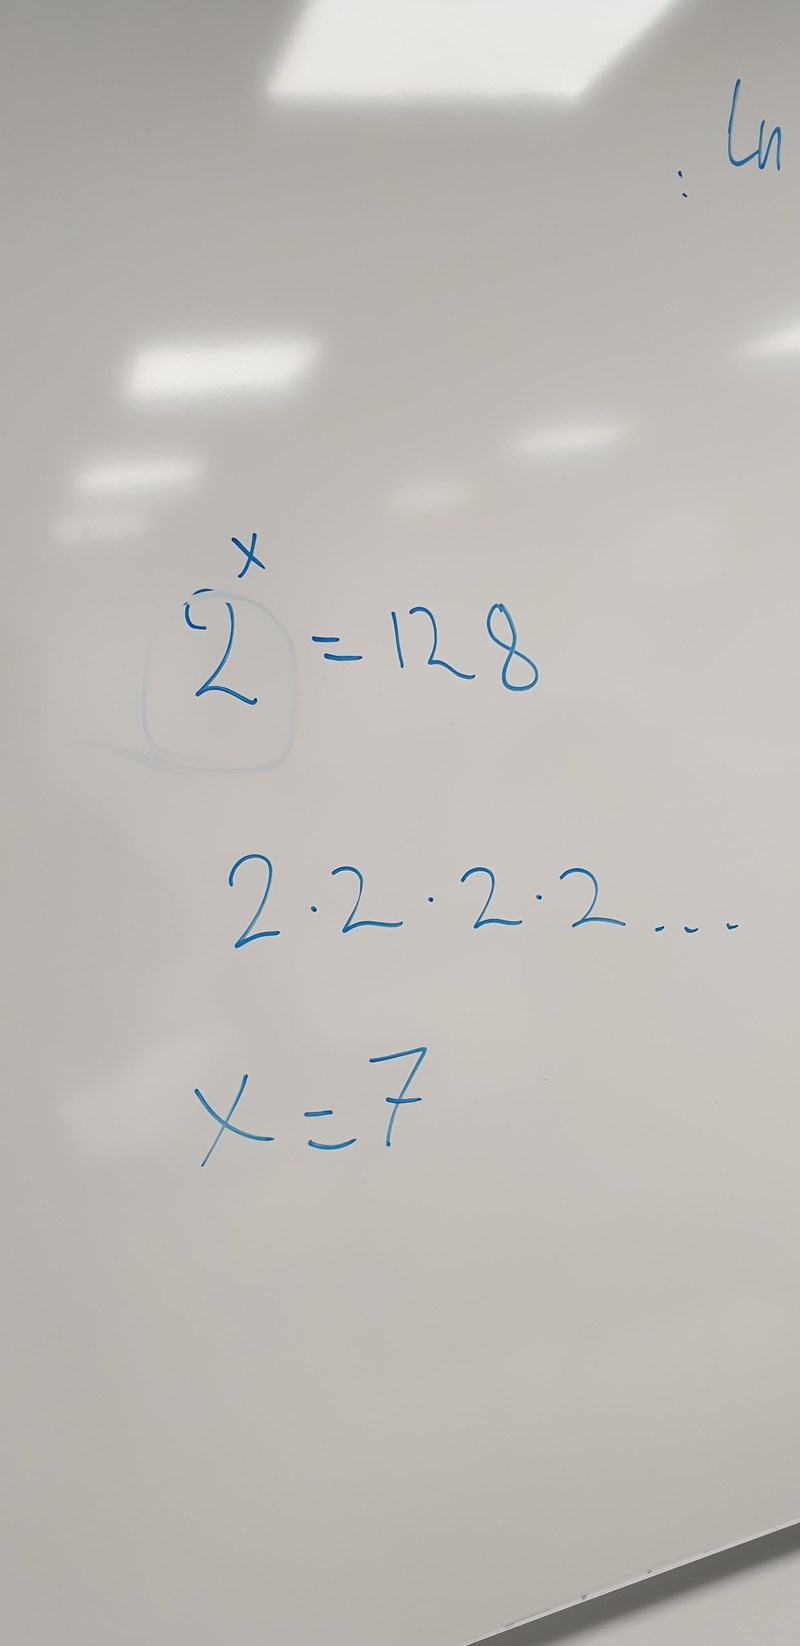 : Ln
2ˣ = 128
2 · 2 · 2 · 2 ...
x = 7